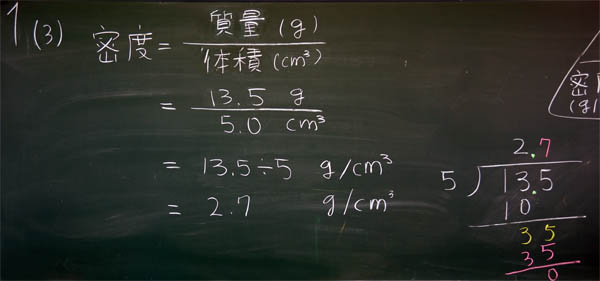 1 (3) 密度 = 質量 (g) / 体積 (cm³)
= 13.5 g / 5.0 cm³
= 13.5÷5 g/cm³
= 2.7 g/cm³
密
(g/
2.7
5 ) 13.5
10
3 5
3 5
0